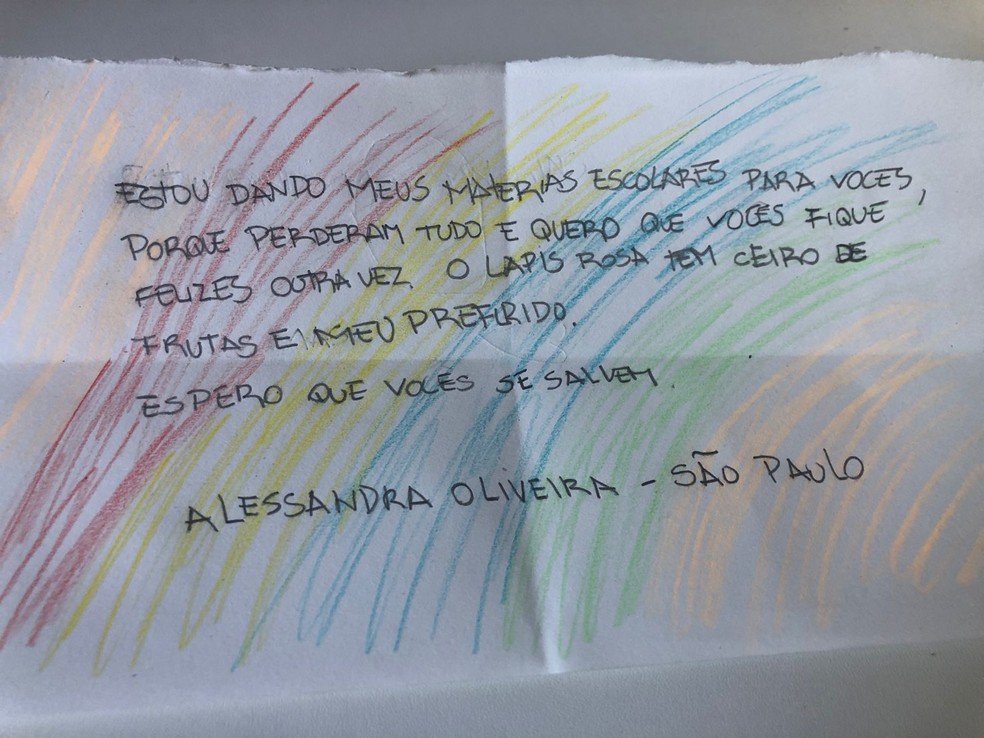 ESTOU DANDO MEUS MATERIAS ESCOLARES PARA VOCES,
PORQUE PERDERAM TUDO E QUERO QUE VOCES FIQUE
FELIZES OUTRA VEZ. O LAPIS ROSA TEM CEIRO DE
FRUTAS E MEU PREFIRIDO.
ESPERO QUE VOCES SE SALVEM.
ALESSANDRA OLIVEIRA - SÃO PAULO